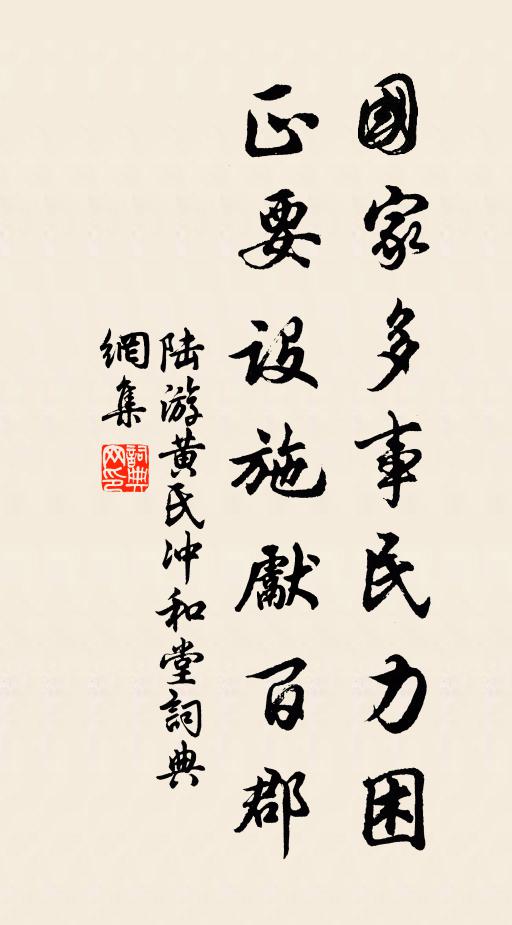 國家多事民力困
正要設施獻百郡
陆游黄氏冲和堂詞典
網集
詞典
网印